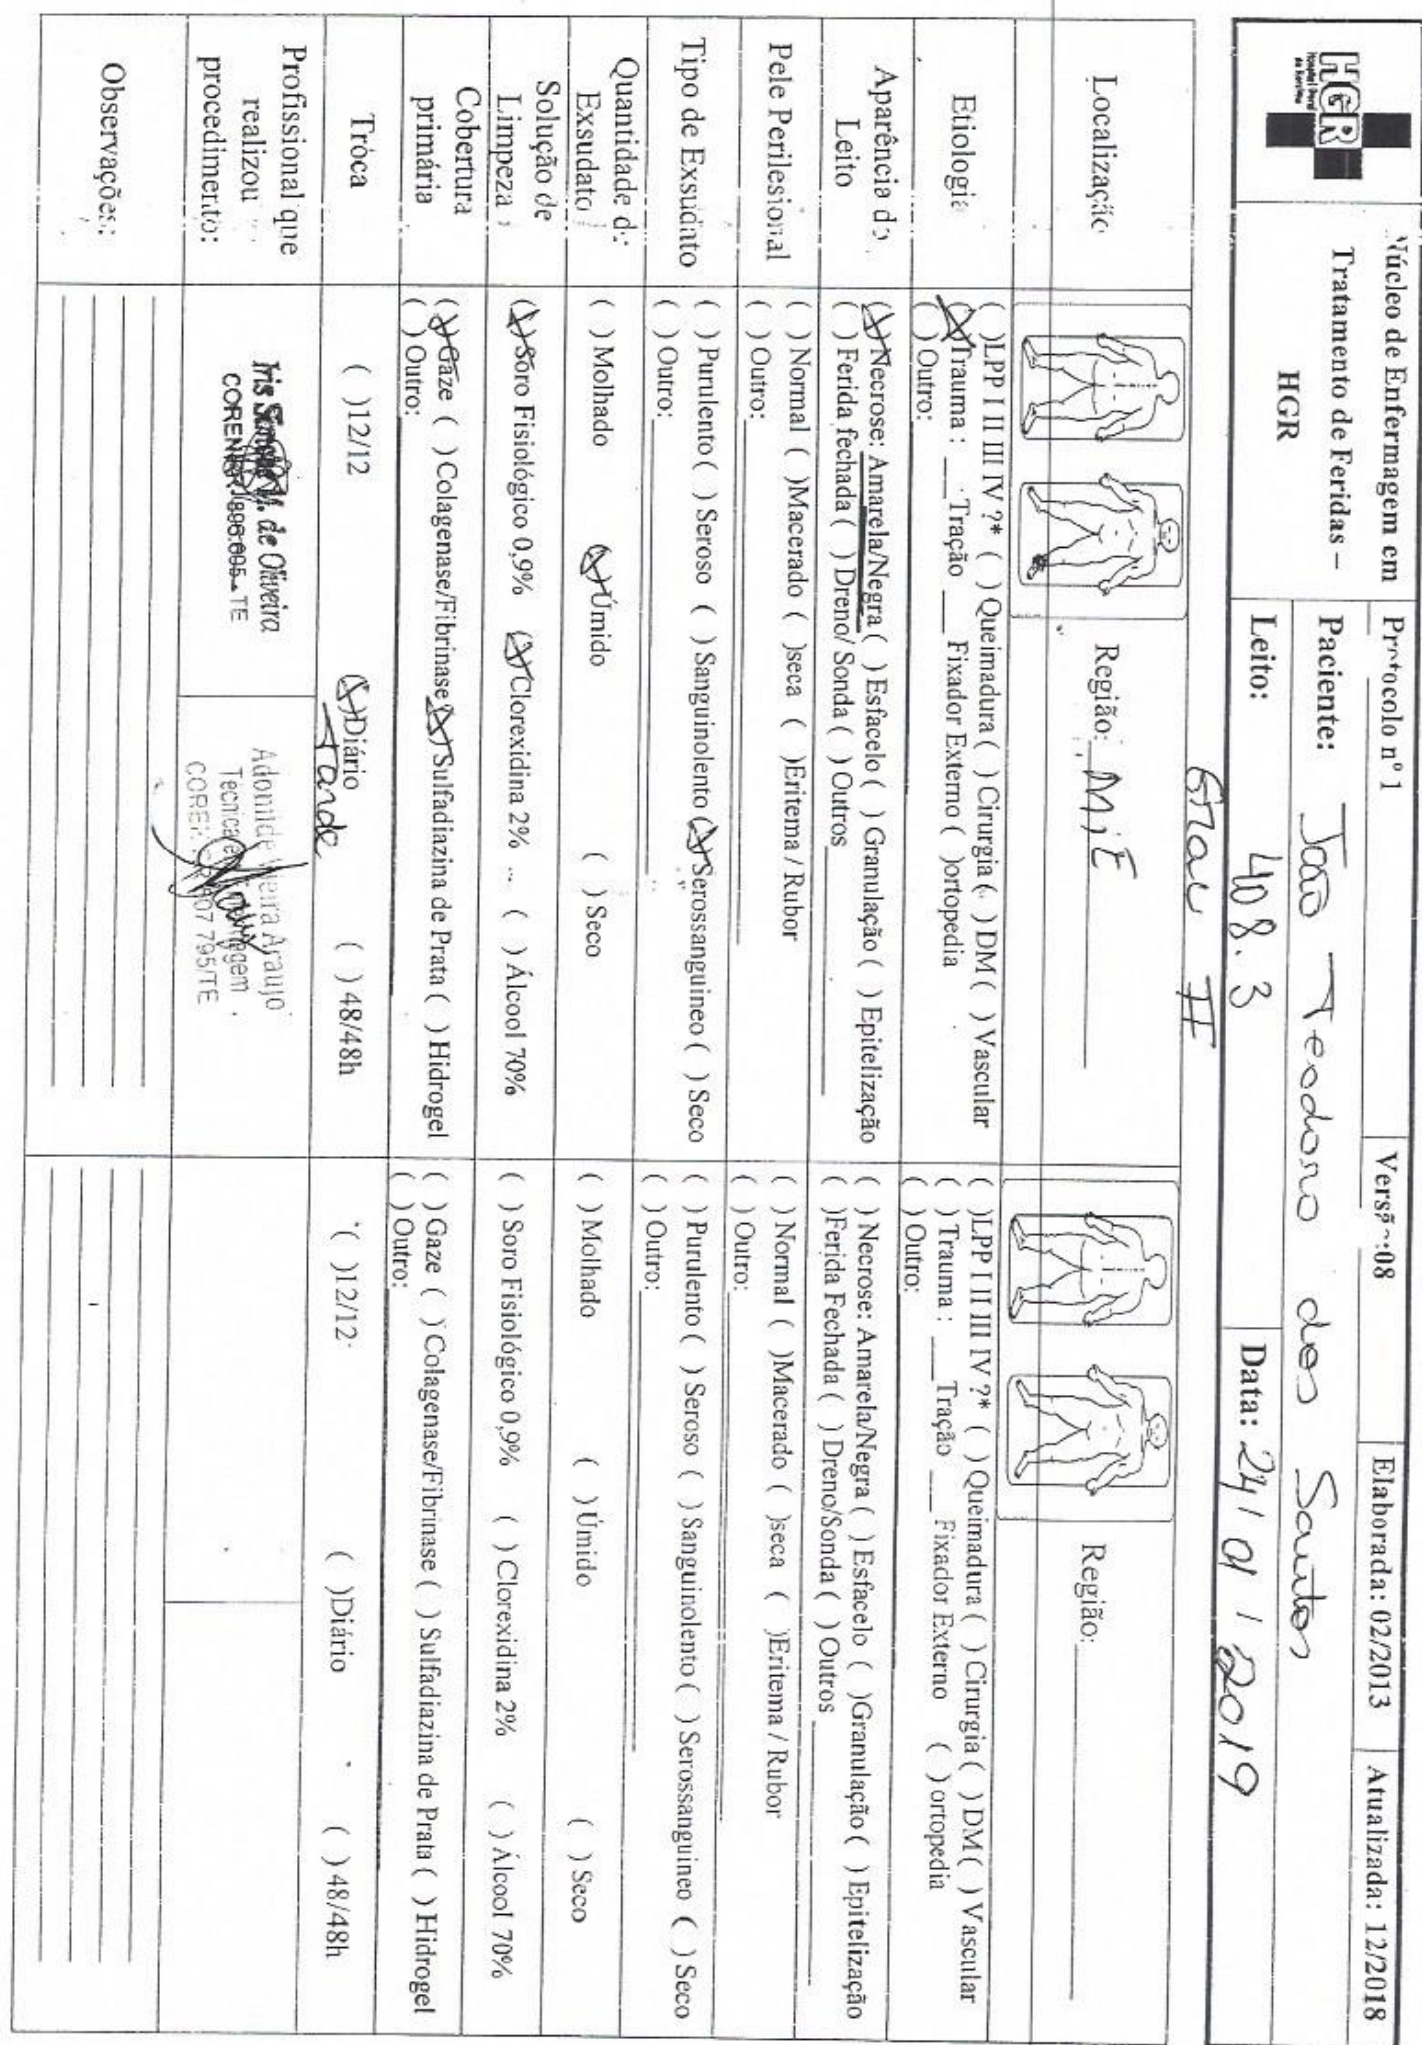 HGR
Núcleo de Enfermagem em
Tratamento de Feridas –
HGR
Protocolo nº 1
Versão:08
Elaborada: 02/2013
Atualizada: 12/2018
Paciente: João Teodoro dos Santos
Leito: 408.3
Data: 24/01/2019
Grau II
Localização
Região: MIE
Região:
Etiologia
( )LPP I II III IV ?* ( ) Queimadura ( ) Cirurgia ( ) DM ( ) Vascular
(X)Trauma : ___Tração ___ Fixador Externo ( )ortopedia
( ) Outro:
( )LPP I II III IV ?* ( ) Queimadura ( ) Cirurgia ( ) DM ( ) Vascular
( ) Trauma : ___Tração ___ Fixador Externo ( ) ortopedia
( ) Outro:
Aparência do
Leito
(X)Necrose: Amarela/Negra ( ) Esfacelo ( ) Granulação ( ) Epitelização
( ) Ferida fechada ( ) Dreno/ Sonda ( ) Outros
( ) Necrose: Amarela/Negra ( ) Esfacelo ( )Granulação ( ) Epitelização
( )Ferida Fechada ( ) Dreno/Sonda ( ) Outros
Pele Perilesional
( ) Normal ( )Macerado ( )seca ( )Eritema / Rubor
( ) Outro:
( ) Normal ( )Macerado ( )seca ( )Eritema / Rubor
( ) Outro:
Tipo de Exsudato
( ) Purulento ( ) Seroso ( ) Sanguinolento (X) Serossanguineo ( ) Seco
( ) Outro:
( ) Purulento ( ) Seroso ( ) Sanguinolento ( ) Serossanguineo ( ) Seco
( ) Outro:
Quantidade de
Exsudato
( ) Molhado (X)Úmido ( ) Seco
( ) Molhado ( ) Úmido ( ) Seco
Solução de
Limpeza
(X) Soro Fisiológico 0,9% (X)Clorexidina 2% ( ) Álcool 70%
( ) Soro Fisiológico 0,9% ( ) Clorexidina 2% ( ) Álcool 70%
Cobertura
primária
(X)Gaze ( )Colagenase/Fibrinase (X)Sulfadiazina de Prata ( ) Hidrogel
( ) Outro:
( ) Gaze ( ) Colagenase/Fibrinase ( ) Sulfadiazina de Prata ( ) Hidrogel
( ) Outro:
Troca
( )12/12 (X)Diário ( ) 48/48h
Tarde
( )12/12 ( )Diário ( ) 48/48h
Profissional que
realizou
procedimento:
Iris M. de Oliveira
COREN TE
Adonilde Vieira Araujo
COREN 795/TE
Observações: